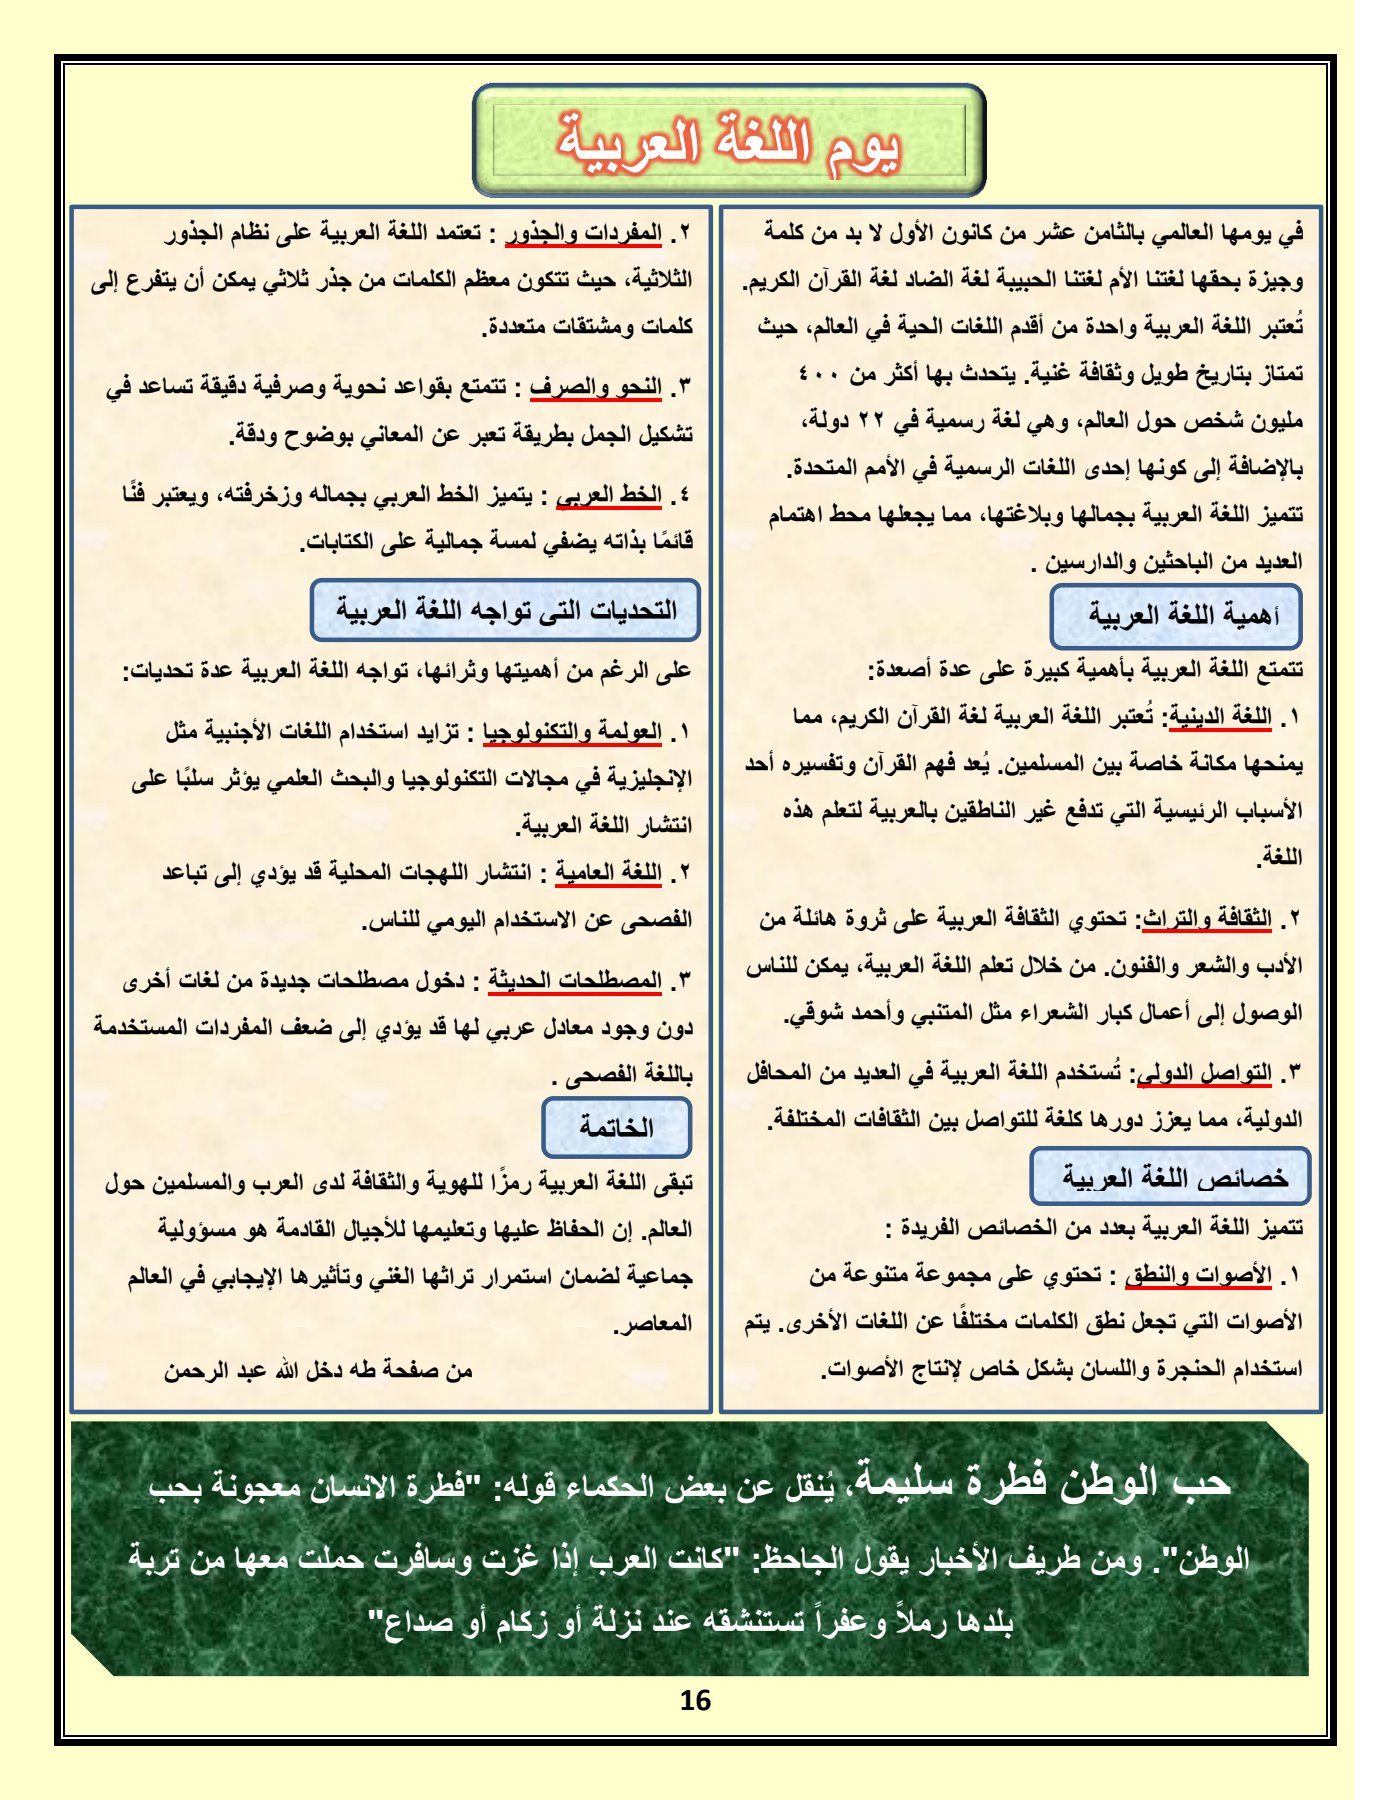 يوم اللغة العربية
في يومها العالمي بالثامن عشر من كانون الأول لا بد من كلمة
وجيزة بحقها لغتنا الأم لغتنا الحبيبة لغة الضاد لغة القرآن الكريم.
تُعتبر اللغة العربية واحدة من أقدم اللغات الحية في العالم، حيث
تمتاز بتاريخ طويل وثقافة غنية. يتحدث بها أكثر من ٤٠٠
مليون شخص حول العالم، وهي لغة رسمية في ٢٢ دولة،
بالإضافة إلى كونها إحدى اللغات الرسمية في الأمم المتحدة.
تتميز اللغة العربية بجمالها وبلاغتها، مما يجعلها محط اهتمام
العديد من الباحثين والدارسين .
أهمية اللغة العربية
تتمتع اللغة العربية بأهمية كبيرة على عدة أصعدة:
١. اللغة الدينية: تُعتبر اللغة العربية لغة القرآن الكريم، مما
يمنحها مكانة خاصة بين المسلمين. يُعد فهم القرآن وتفسيره أحد
الأسباب الرئيسية التي تدفع غير الناطقين بالعربية لتعلم هذه
اللغة.
٢. الثقافة والتراث: تحتوي الثقافة العربية على ثروة هائلة من
الأدب والشعر والفنون. من خلال تعلم اللغة العربية، يمكن للناس
الوصول إلى أعمال كبار الشعراء مثل المتنبي وأحمد شوقي.
٣. التواصل الدولي: تُستخدم اللغة العربية في العديد من المحافل
الدولية، مما يعزز دورها كلغة للتواصل بين الثقافات المختلفة.
خصائص اللغة العربية
تتميز اللغة العربية بعدد من الخصائص الفريدة :
١. الأصوات والنطق : تحتوي على مجموعة متنوعة من
الأصوات التي تجعل نطق الكلمات مختلفًا عن اللغات الأخرى. يتم
استخدام الحنجرة واللسان بشكل خاص لإنتاج الأصوات.
٢. المفردات والجذور : تعتمد اللغة العربية على نظام الجذور
الثلاثية، حيث تتكون معظم الكلمات من جذر ثلاثي يمكن أن يتفرع إلى
كلمات ومشتقات متعددة.
٣. النحو والصرف : تتمتع بقواعد نحوية وصرفية دقيقة تساعد في
تشكيل الجمل بطريقة تعبر عن المعاني بوضوح ودقة.
٤. الخط العربي : يتميز الخط العربي بجماله وزخرفته، ويعتبر فنًا
قائمًا بذاته يضفي لمسة جمالية على الكتابات.
التحديات التى تواجه اللغة العربية
على الرغم من أهميتها وثرائها، تواجه اللغة العربية عدة تحديات:
١. العولمة والتكنولوجيا : تزايد استخدام اللغات الأجنبية مثل
الإنجليزية في مجالات التكنولوجيا والبحث العلمي يؤثر سلبًا على
انتشار اللغة العربية.
٢. اللغة العامية : انتشار اللهجات المحلية قد يؤدي إلى تباعد
الفصحى عن الاستخدام اليومي للناس.
٣. المصطلحات الحديثة : دخول مصطلحات جديدة من لغات أخرى
دون وجود معادل عربي لها قد يؤدي إلى ضعف المفردات المستخدمة
باللغة الفصحى .
الخاتمة
تبقى اللغة العربية رمزًا للهوية والثقافة لدى العرب والمسلمين حول
العالم. إن الحفاظ عليها وتعليمها للأجيال القادمة هو مسؤولية
جماعية لضمان استمرار تراثها الغني وتأثيرها الإيجابي في العالم
المعاصر.
من صفحة طه دخل الله عبد الرحمن
حب الوطن فطرة سليمة، يُنقل عن بعض الحكماء قوله: "فطرة الانسان معجونة بحب
الوطن". ومن طريف الأخبار يقول الجاحظ: "كانت العرب إذا غزت وسافرت حملت معها من تربة
بلدها رملاً وعفراً تستنشقه عند نزلة أو زكام أو صداع"
16